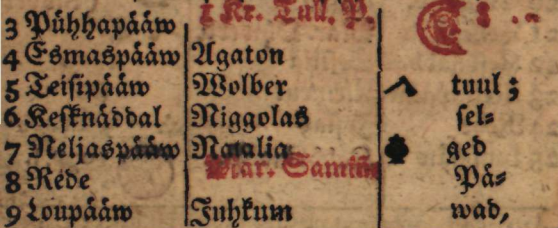 1 Kr. Tull. P.
3 Pühhapääw
4 Esmaspääw Agaton
5 Teisipääw Wolber tuul;
6 Kesknäddal Niggolas sel-
7 Neljaspääw Natalia ged
Mar. Samin
8 Rede Pä-
9 Loupääw Juhkum wad,